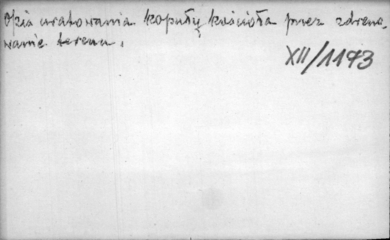 Opis uratowania kopuły kościoła przez zdreno-
wanie terenu.
XII/1193